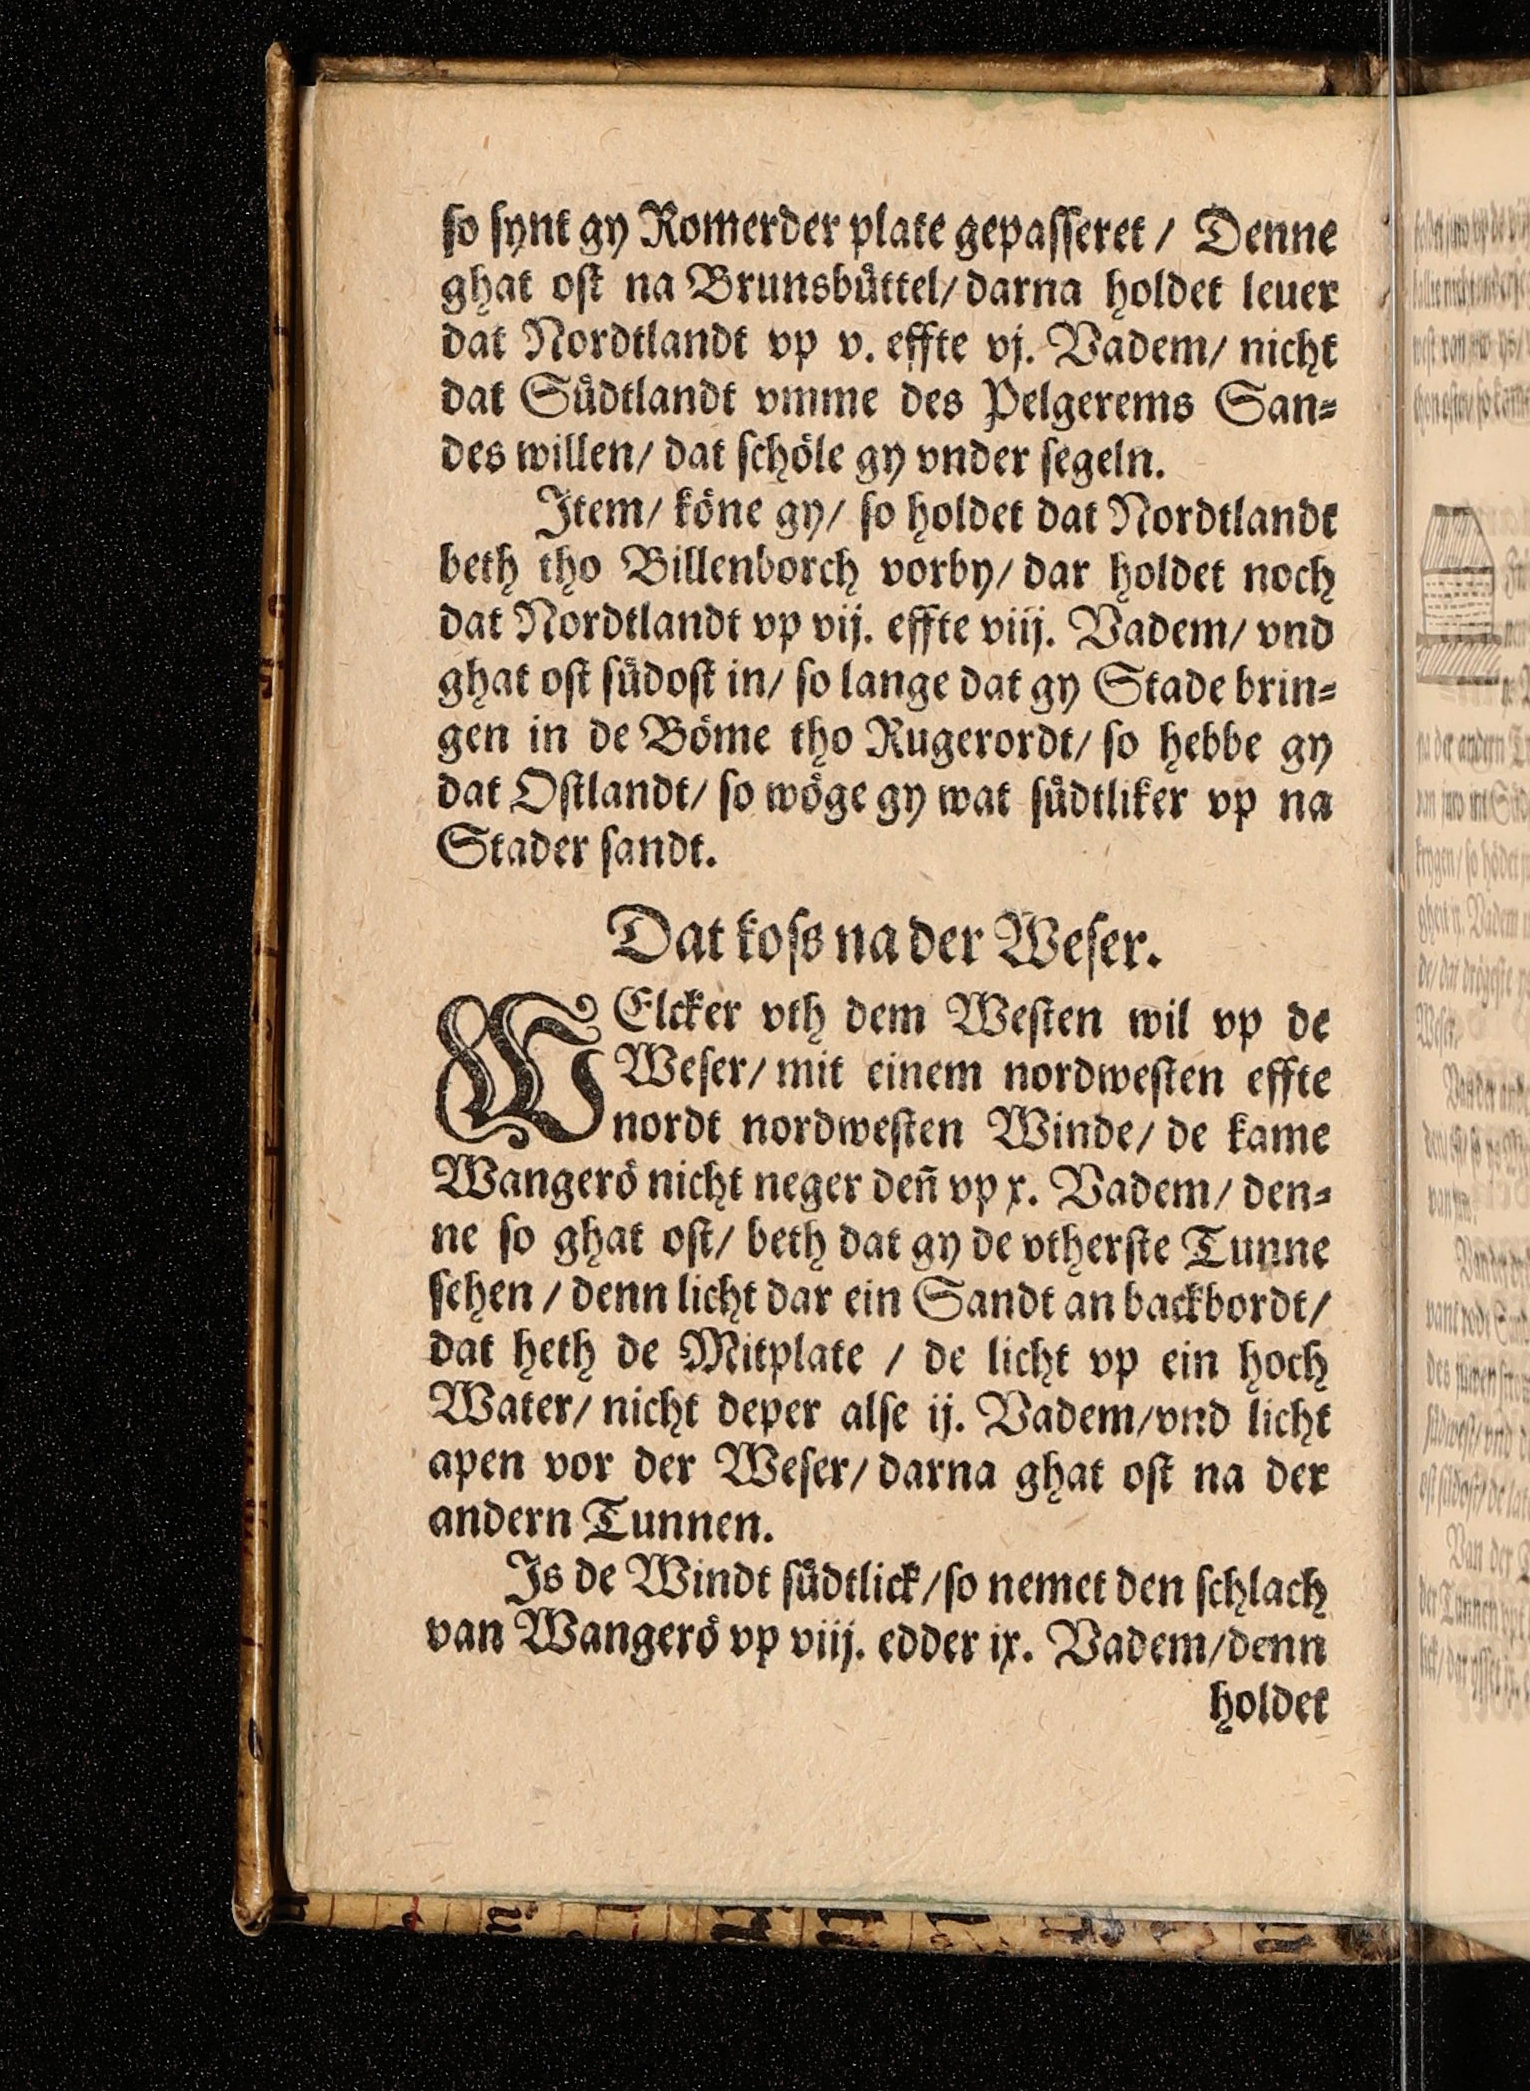 so synt gy Romerder plate gepasseret / Denne
ghat ost na Brunsbüttel / darna holdet leuer
dat Nordtlandt vp v. effte vj. Vadem / nicht
dat Südtlandt vmme des Pelgerems San=
des willen / dat schöle gy vnder segeln.
Item / köne gy / so holdet dat Nordtlandt
beth tho Billenborch vorby / dar holdet noch
dat Nordtlandt vp vij. effte viij. Vadem / vnd
ghat ost südost in / so lange dat gy Stade brin=
gen in de Böme tho Rugerordt / so hebbe gy
dat Ostlandt / so wöge gy wat südtliker vp na
Stader sandt.
Dat koss na der Weser.
WElcker vth dem Westen wil vp de
Weser / mit einem nordwesten effte
nordt nordwesten Winde / de kame
Wangerö nicht neger deñ vp x. Vadem / den=
ne so ghat ost / beth dat gy de vtherste Tunne
sehen / denn licht dar ein Sandt an backbordt /
dat heth de Mitplate / de licht vp ein hoch
Water / nicht deper alse ij. Vadem / vnd licht
apen vor der Weser / darna ghat ost na der
andern Tunnen.
Is de Windt südtlick / so nemet den schlach
van Wangerö vp viij. edder ix. Vadem / denn
holdet